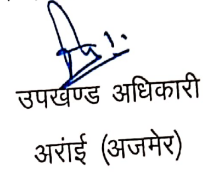 उपखण्ड अधिकारी
अरांई (अजमेर)